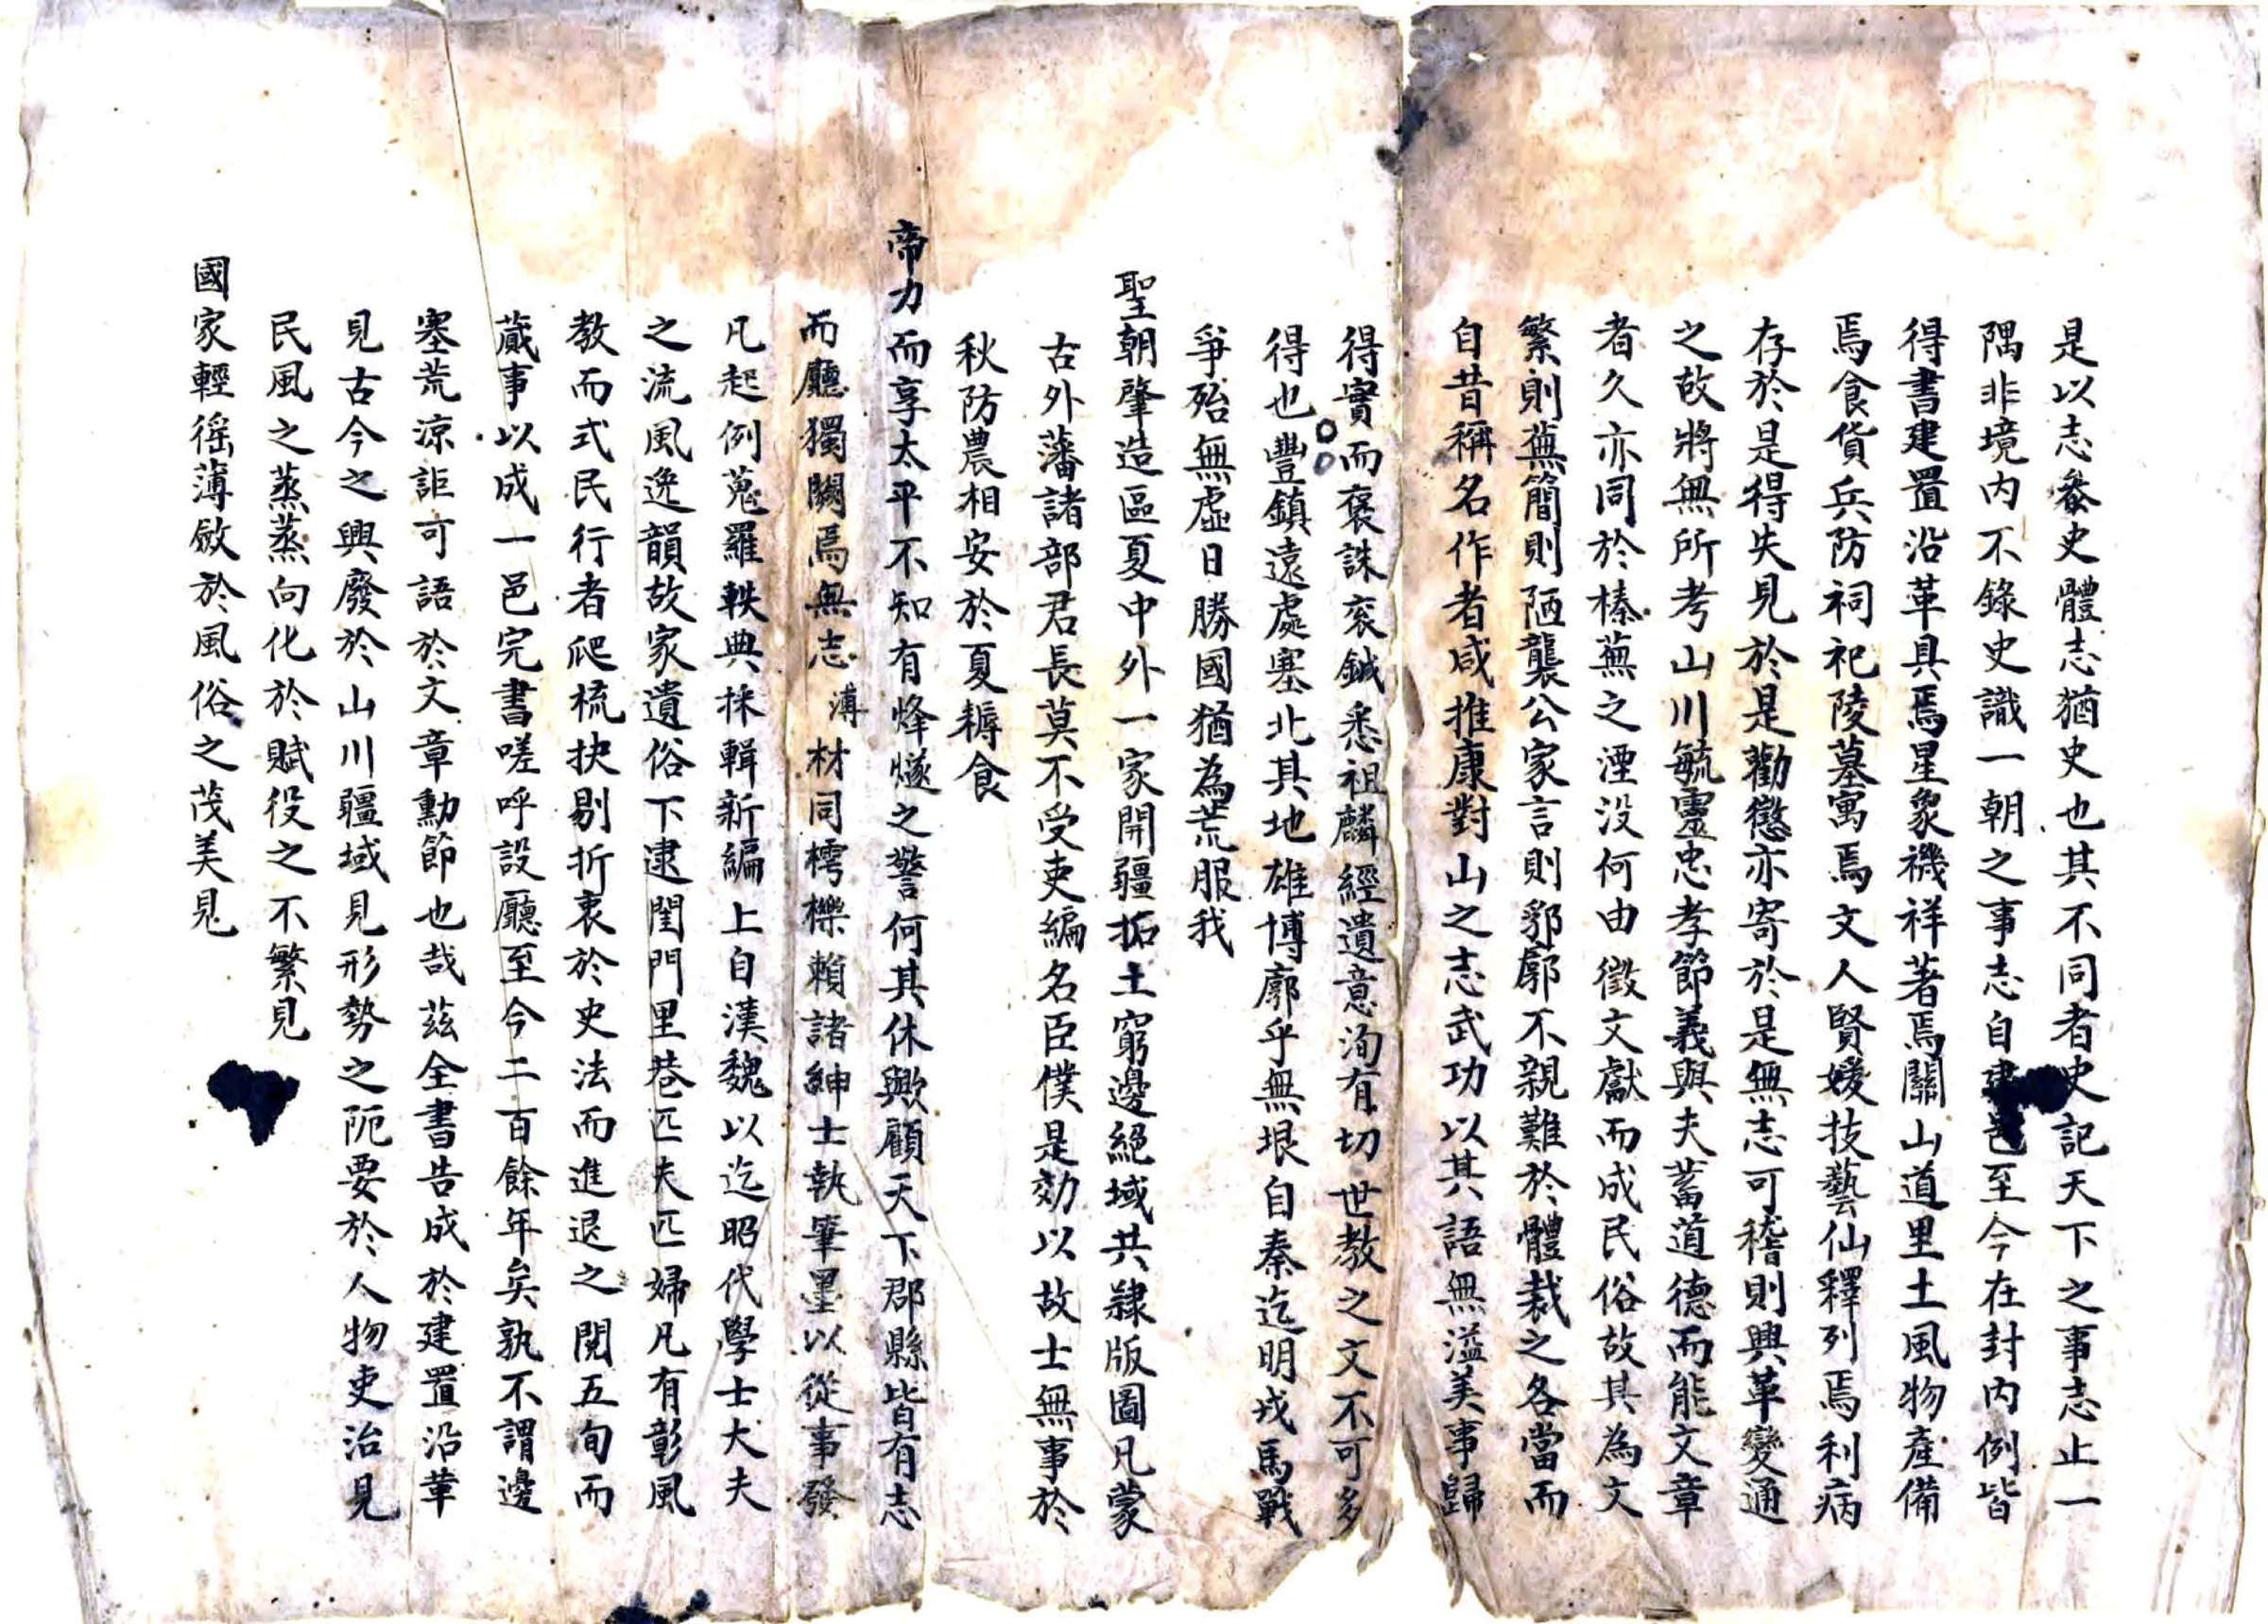 是以志叅史體志猶史也其不同者史記天下之事志止一
隅非境内不錄史識一朝之事志自建邑至今在封内例皆
得書建置沿革具焉星象禨祥著焉關山道里土風物產備
焉食貨兵防祠祀陵墓寓焉文人賢媛技藝仙釋列焉利病
存於是得失見於是勸懲亦寄於是無志可稽則興革變通
之故將無所考山川毓靈忠孝節義與夫蓄道德而能文章
者久亦同於榛蕪之湮没何由徵文獻而成民俗故其為文
繁則蕪簡則陋襲公家言則郛廓不親難於體裁之各當而
自昔稱名作者咸推康對山之志武功以其語無溢美事歸
得實而褒誅衮鉞悉祖麟經遺意洵有切世教之文不可多
得也豐鎮遠處塞北其地雄博廓乎無垠自秦迄明戎馬戰
爭殆無虛日勝國猶為荒服我
聖朝肇造區夏中外一家開疆拓土窮邊絕域共隸版圖凡蒙
古外藩諸部君長莫不受吏編名臣僕是効以故士無事於
秋防農相安於夏耨食
帝力而享太平不知有烽燧之警何其休歟顧天下郡縣皆有志
而廳獨闕焉無志溥材同樗櫟賴諸紳士執筆墨以從事發
凡起例蒐羅軼典採輯新編上自漢魏以迄昭代學士大夫
之流風逸韻故家遺俗下逮閨門里巷匹夫匹婦凡有彰風
教而式民行者爬梳抉剔折衷於史法而進退之閱五旬而
蕆事以成一邑完書嗟呼設廳至今二百餘年矣孰不謂邊
塞荒涼詎可語於文章勳節也哉茲全書告成於建置沿革
見古今之興廢於山川疆域見形勢之阨要於人物吏治見
民風之蒸蒸向化於賦役之不繁見
國家輕徭薄斂於風俗之茂美見